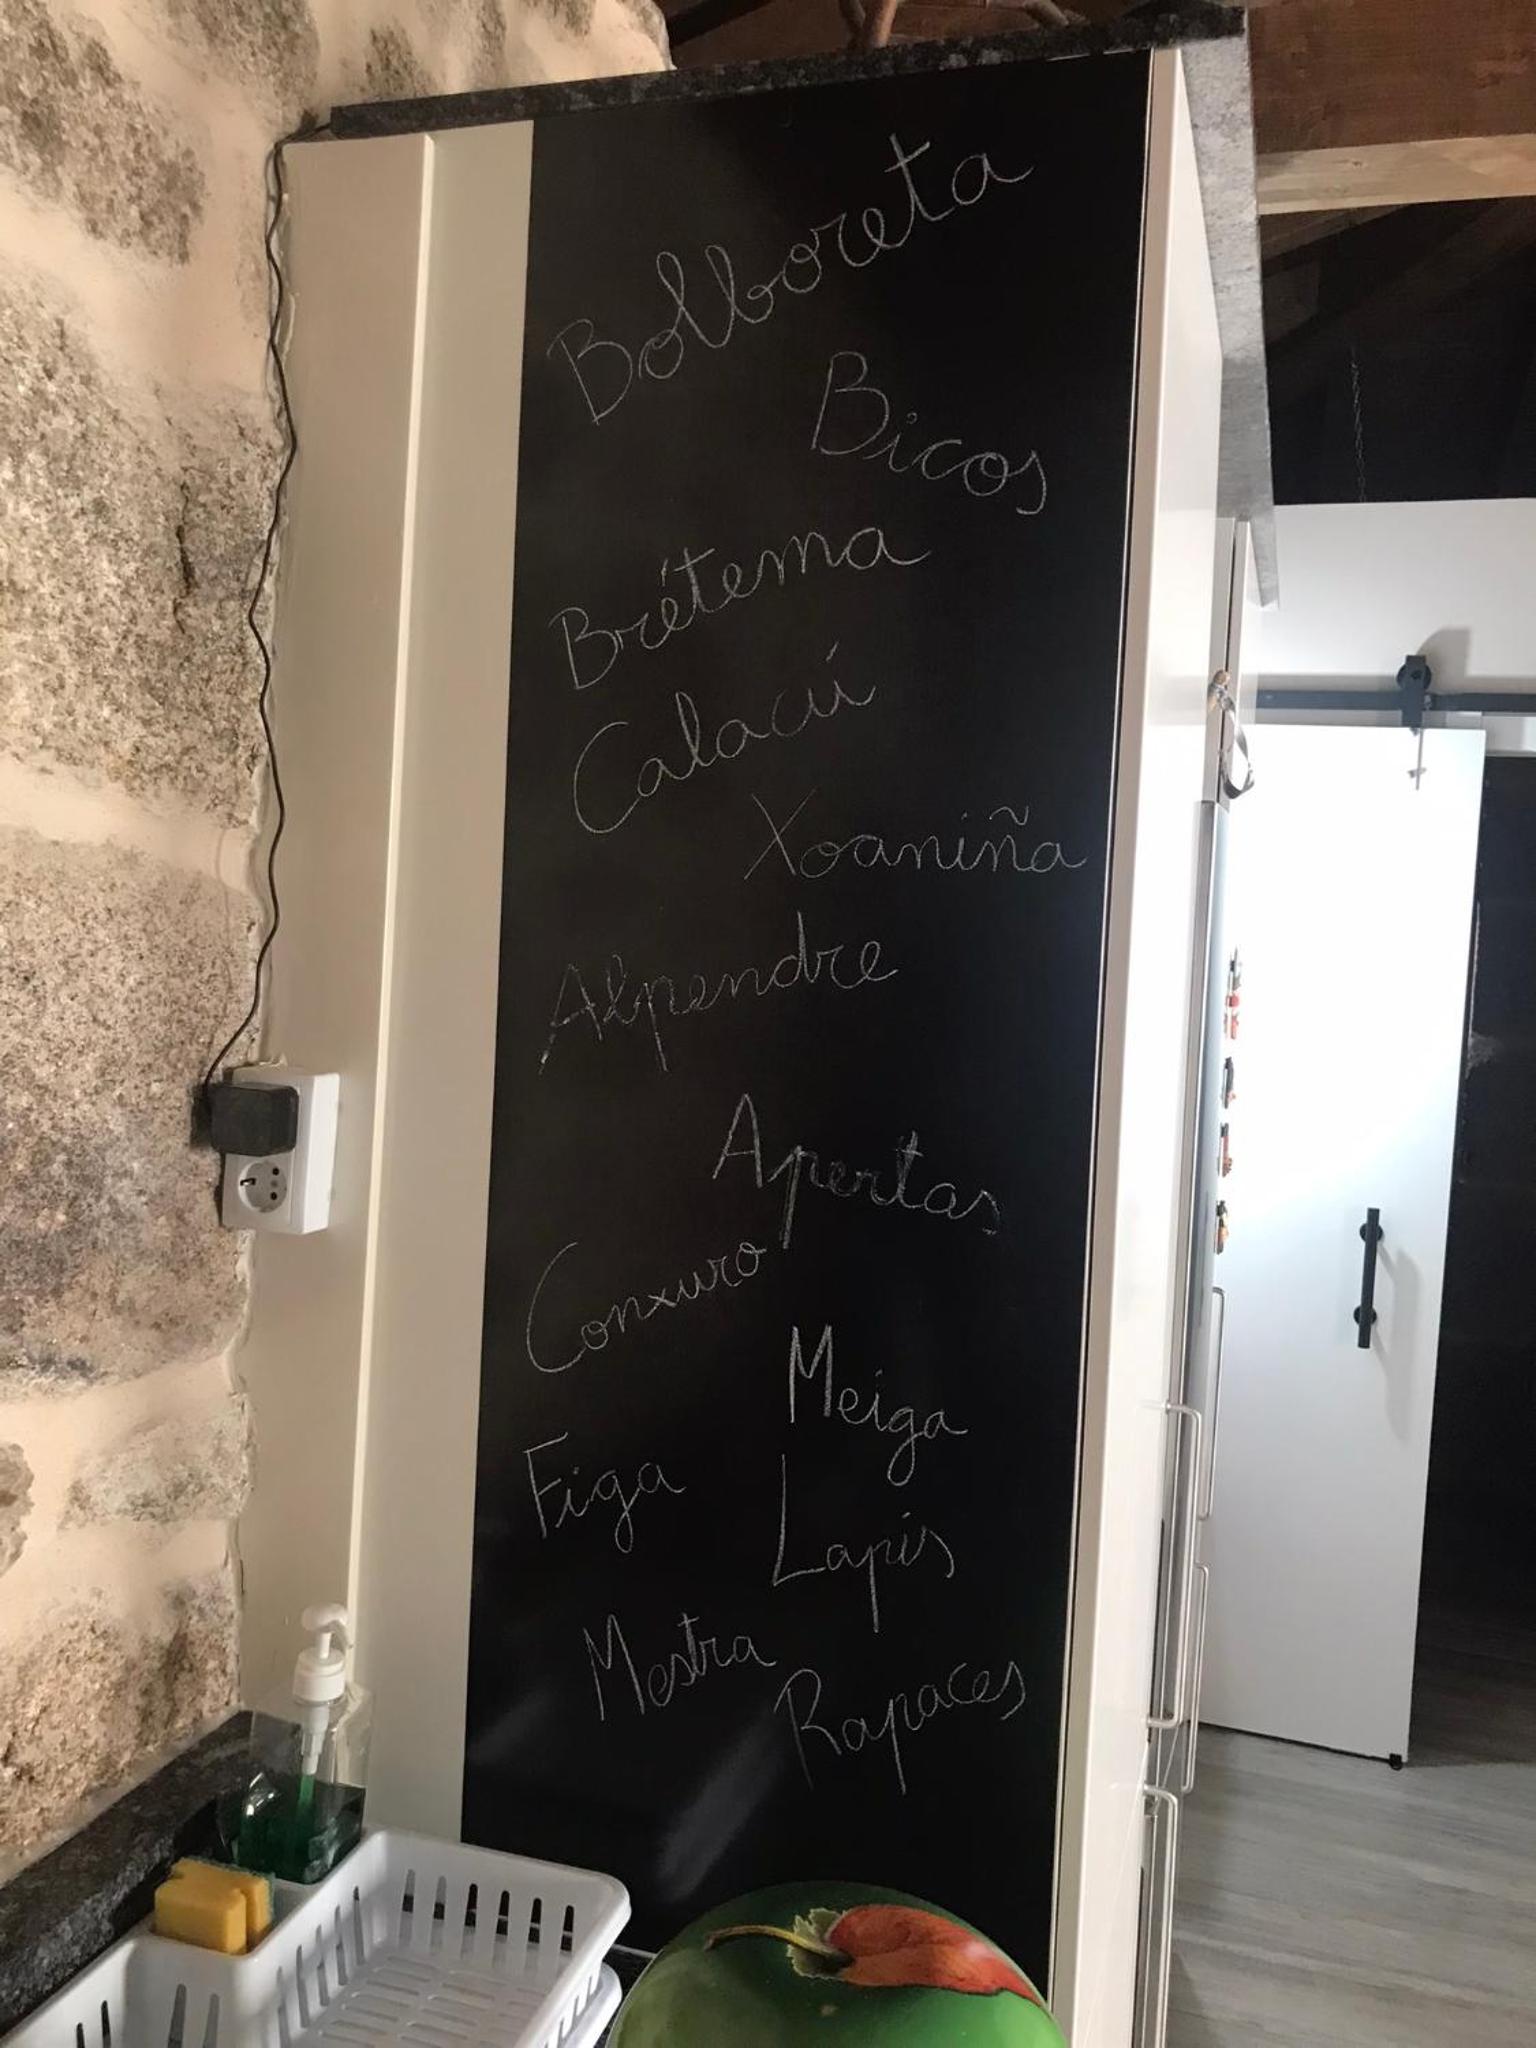 Bolboreta
Bicos
Brétema
Calacú
Xoaniña
Alpendre
Apertas
Conxuro
Meiga
Figa
Lapis
Mestra
Rapaces